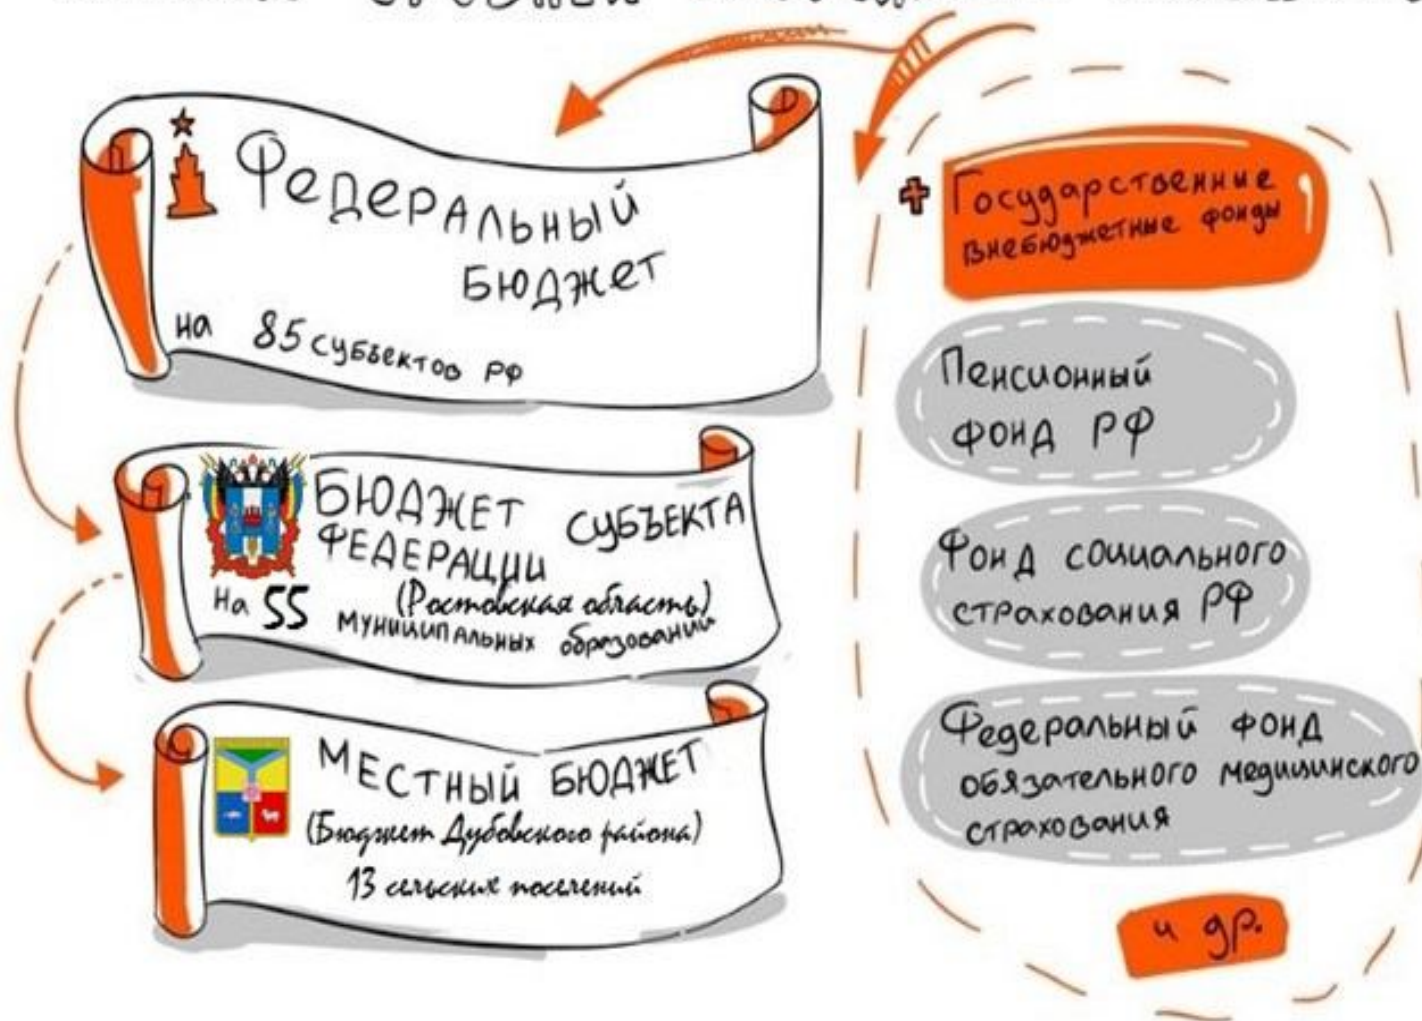 Федеральный
бюджет
на 85 субъектов РФ
Бюджет субъекта
Федерации
(Ростовская область)
На 55 муниципальных образований
Местный бюджет
(Бюджет Дубовского района)
13 сельских поселений
+ Государственные
внебюджетные фонды
Пенсионный
фонд РФ
Фонд социального
страхования РФ
Федеральный фонд
обязательного медицинского
страхования
и др.